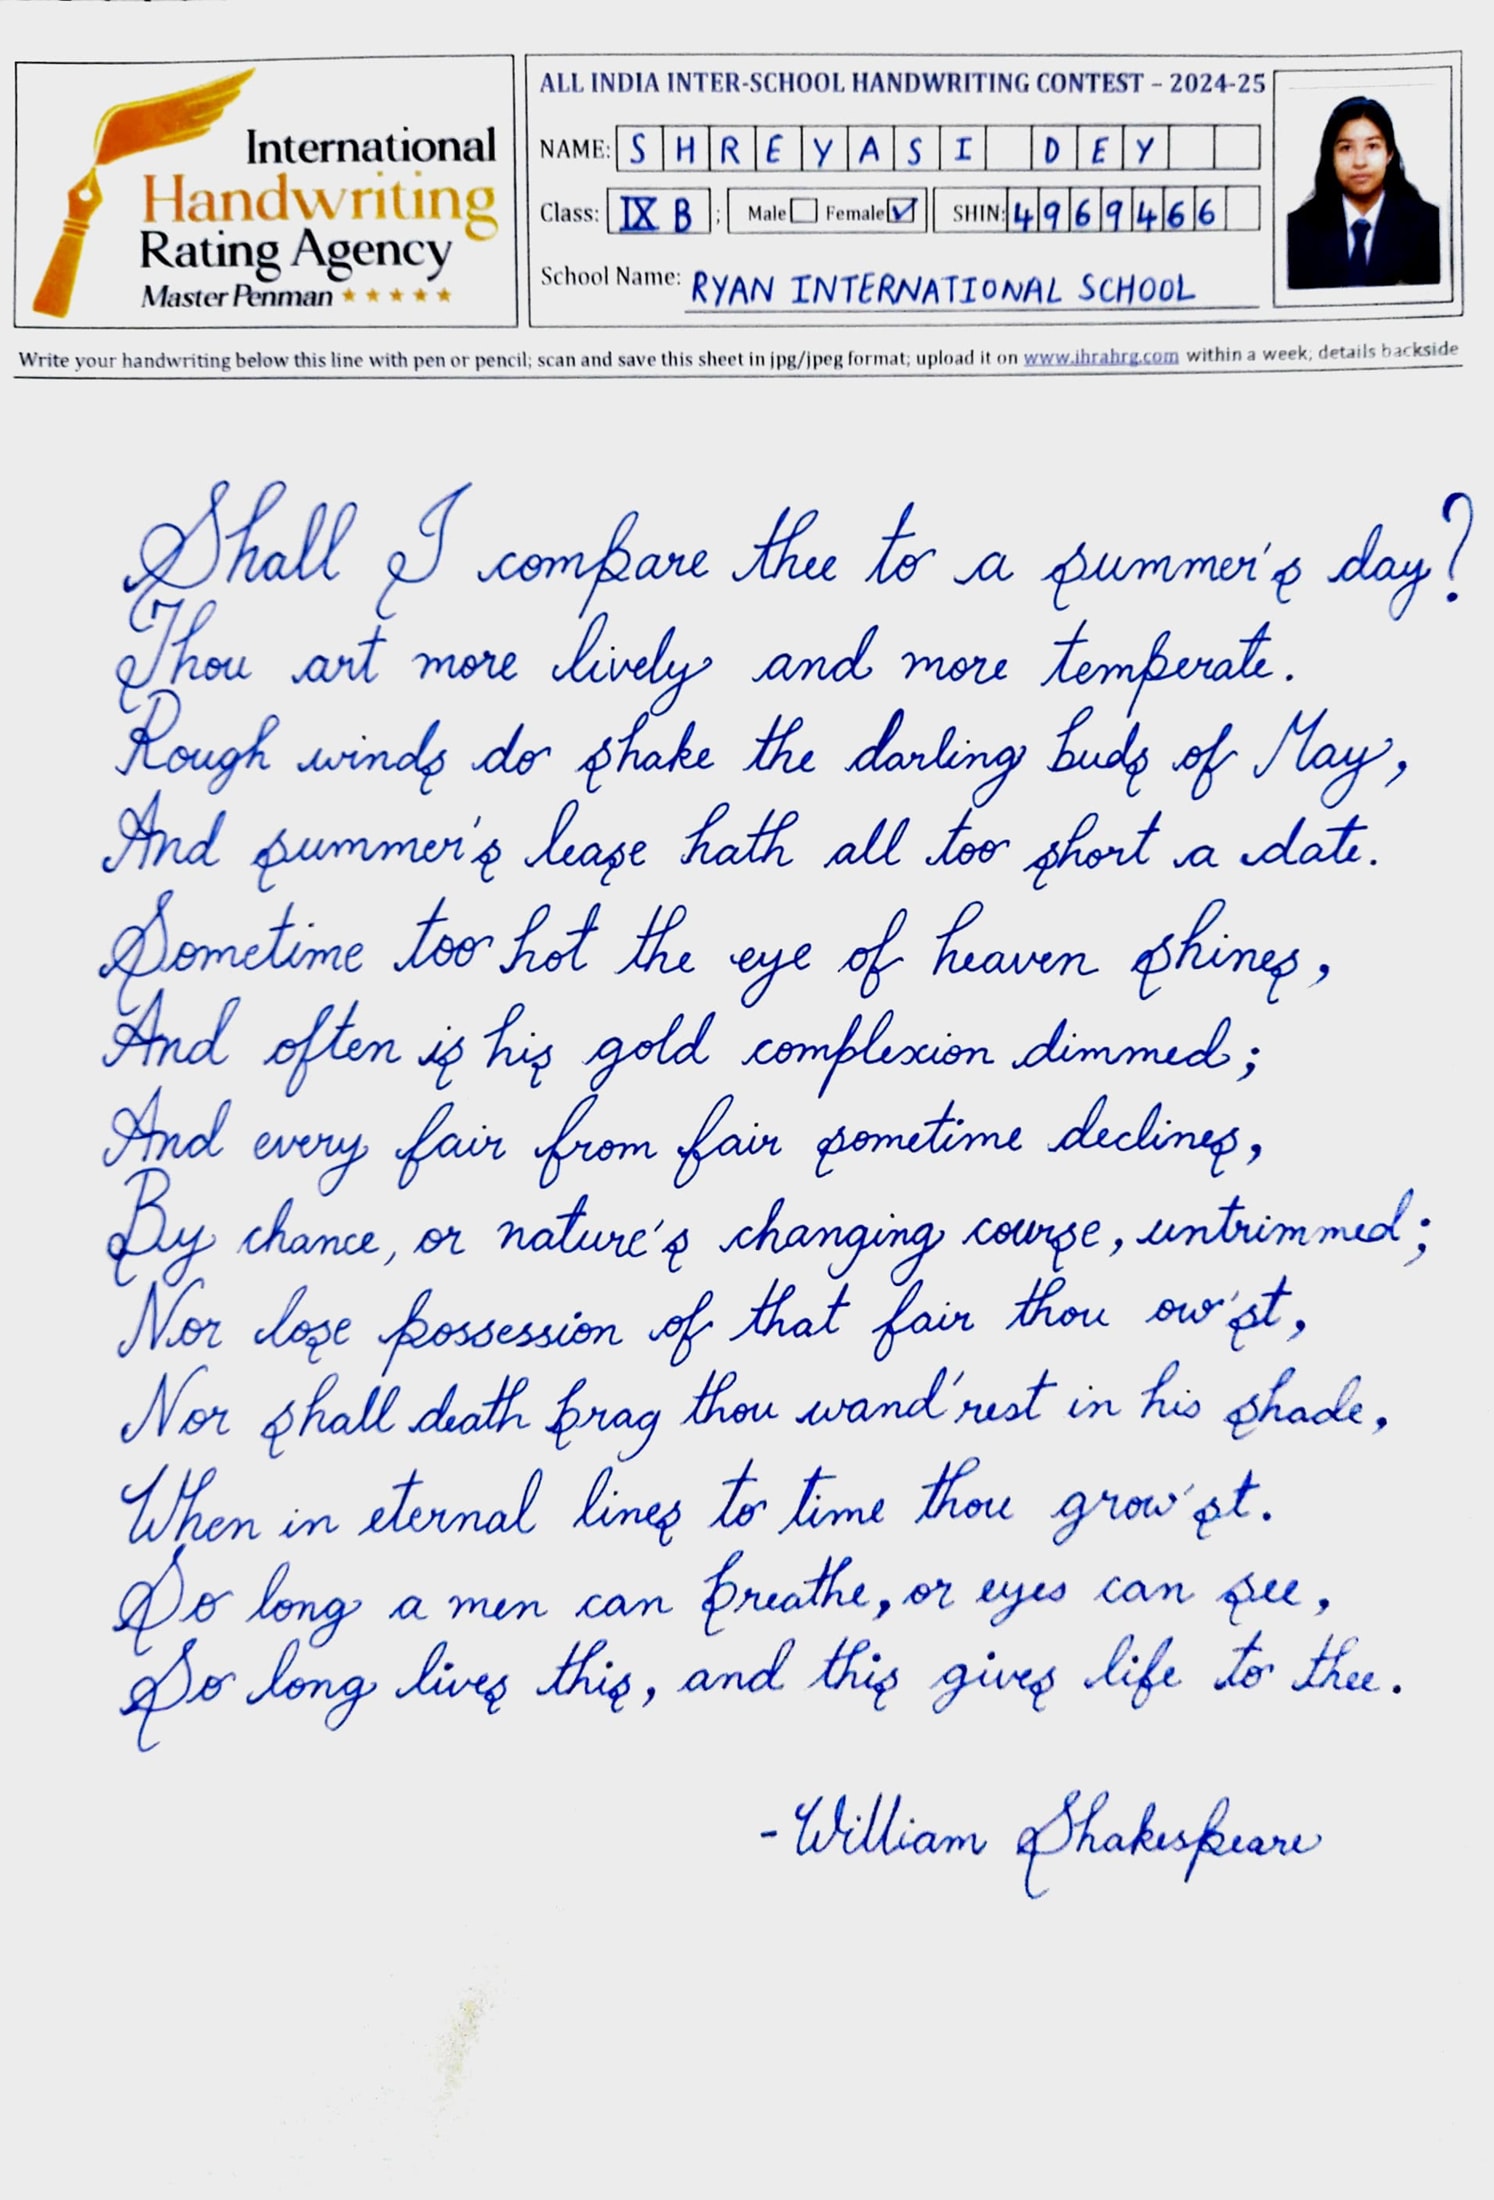 International
Handwriting
Rating Agency
Master Penman
ALL INDIA INTER-SCHOOL HANDWRITING CONTEST – 2024-25
NAME: SHREYASI DEY
Class: IX B ; Male Female SHIN: 4969466
School Name: RYAN INTERNATIONAL SCHOOL
Write your handwriting below this line with pen or pencil; scan and save this sheet in jpg/jpeg format; upload it on www.ihrahrg.com within a week; details backside
Shall I compare thee to a summer's day?
Thou art more lively and more temperate.
Rough winds do shake the darling buds of May,
And summer's lease hath all too short a date.
Sometime too hot the eye of heaven shines,
And often is his gold complexion dimmed;
And every fair from fair sometime declines,
By chance, or nature's changing course, untrimmed;
Nor lose possession of that fair thou ow'st,
Nor shall death brag thou wand'rest in his shade,
When in eternal lines to time thou grow'st.
So long a men can breathe, or eyes can see,
So long lives this, and this gives life to thee.
-William Shakespeare